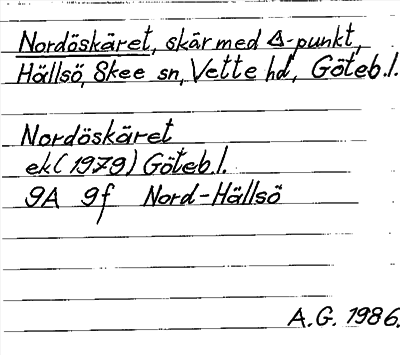 Nordöskäret, skär med △-punkt,
Hällsö, Skee sn, Vette hd, Göteb.l.
Nordöskäret
ek (1979) Göteb.l.
9A 9f Nord-Hällsö
A.G. 1986.